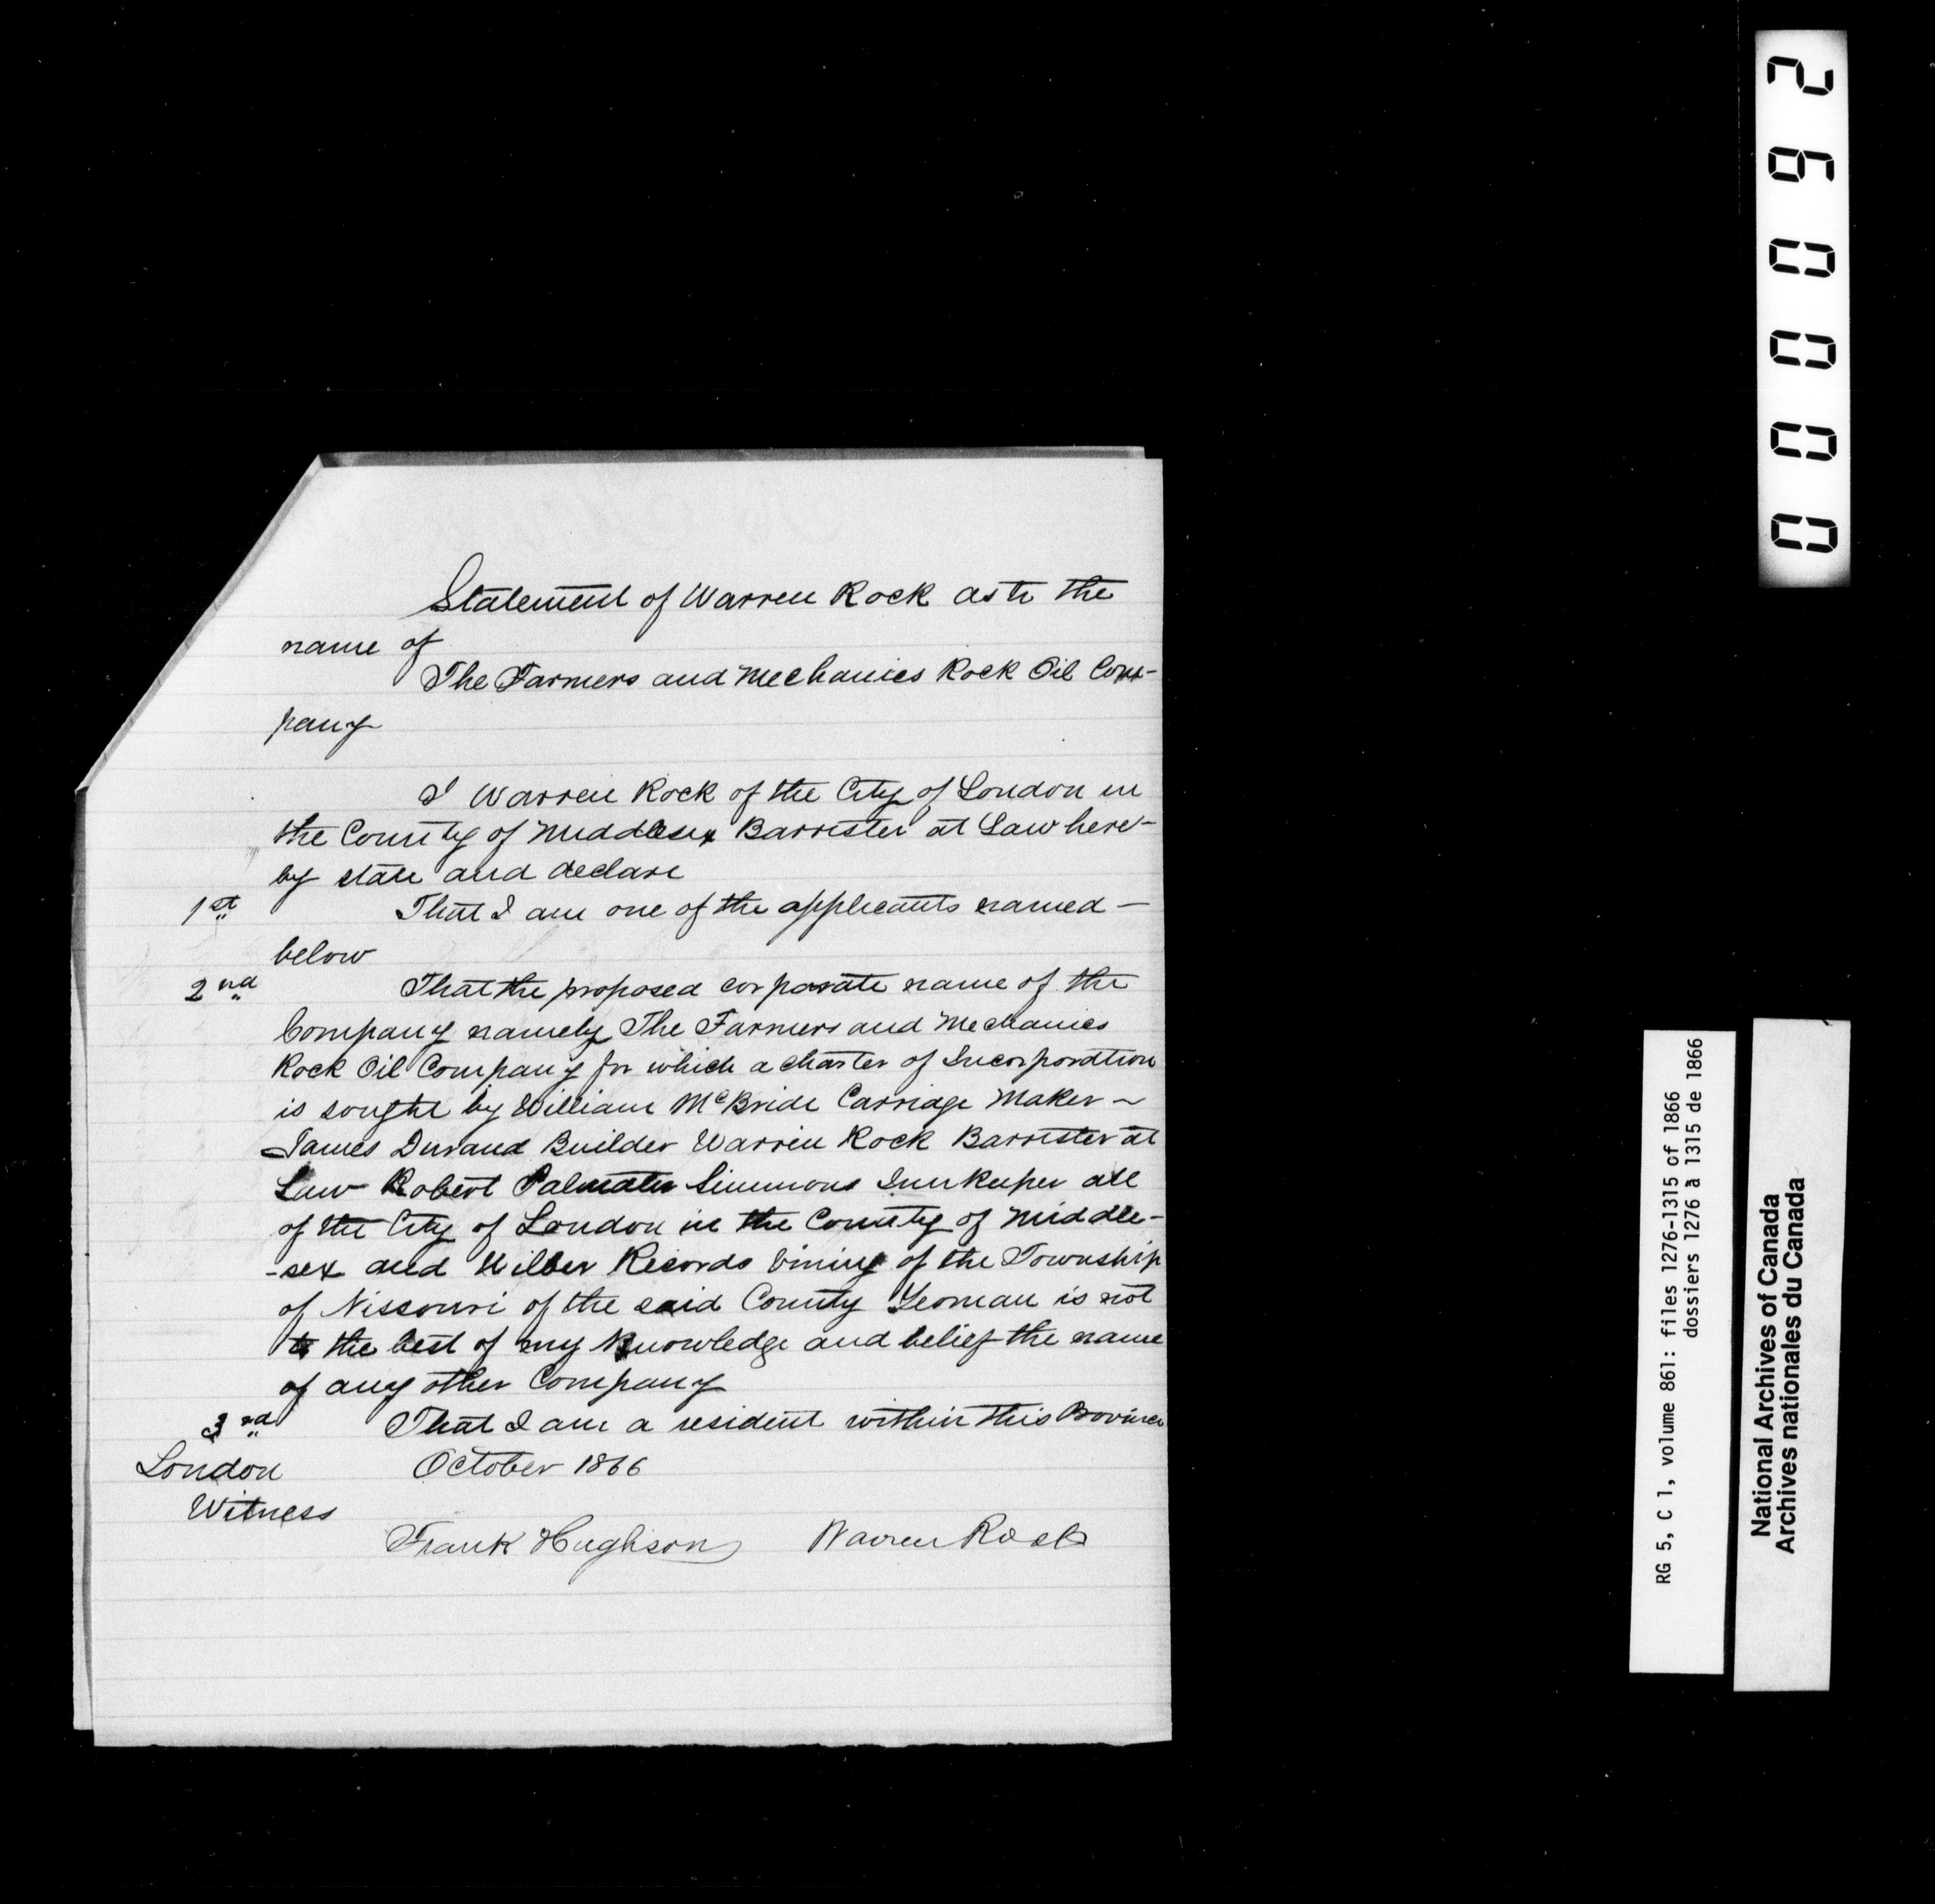 Statement of Warren Rock as to the
name of
The Farmers and Mechanics Rock Oil Com-
pany
I Warren Rock of the City of London in
the County of Middlesex Barrister at Law here-
by state and declare
1st That I am one of the applicants named —
below
2nd That the proposed corporate name of the
Company namely The Farmers and Mechanics
Rock Oil Company for which a charter of Incorporation
is sought by William McBride Carriage Maker ~
James Durand Builder Warren Rock Barrister at
Law Robert Palmater Simmons Innkeeper all
of the City of London in the County of Middle-
-sex and Wilber Records Vining of the Township
of Nissouri of the said County Yeoman is not
to the best of my knowledge and belief the name
of any other Company
3rd That I am a resident within this Province
London October 1866
Witness
Frank Hughson Warren Rock
260000
RG 5, C 1, volume 861: files 1276-1315 of 1866
dossiers 1276 à 1315 de 1866
National Archives of Canada
Archives nationales du Canada